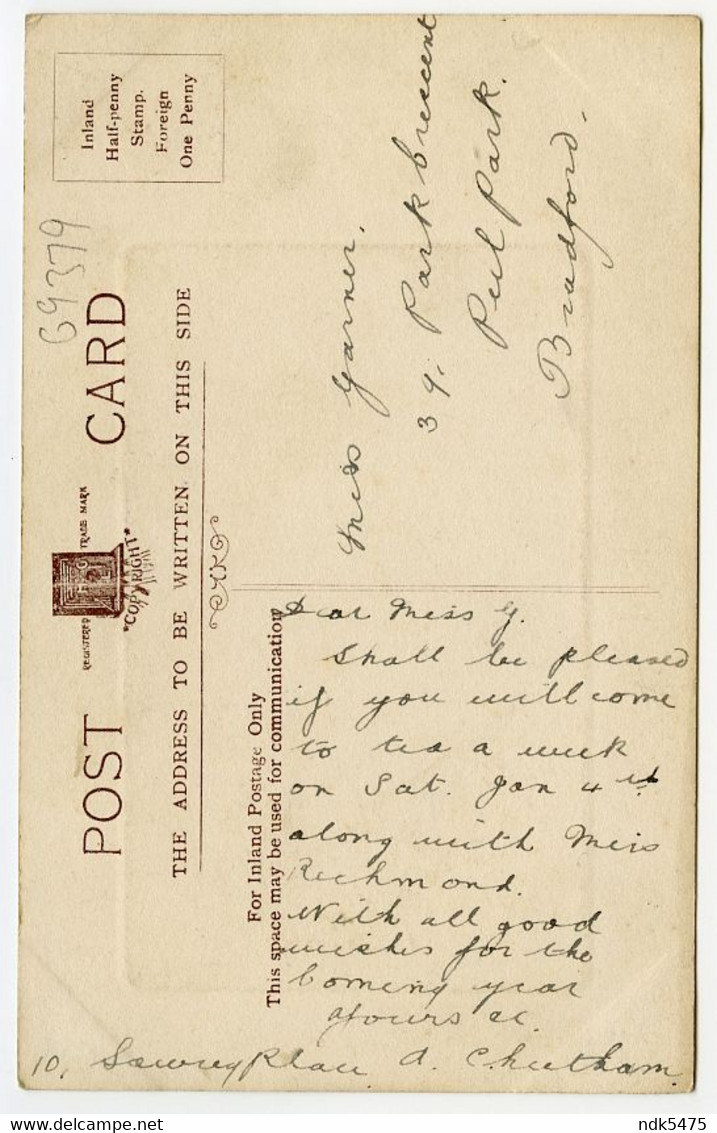 POST CARD
REGISTERED TRADE MARK
"COPYRIGHT"
THE ADDRESS TO BE WRITTEN ON THIS SIDE
Inland
Half-penny
Stamp.
Foreign
One Penny
69379
For Inland Postage Only
This space may be used for communication
Miss Garner.
39, Park Crescent
Peel Park.
Bradford.
Dear Miss G.
Shall be pleased
if you will come
to tea a week
on Sat. Jan 4th
along with Miss
Richmond.
With all good
wishes for the
Coming year
Yours &c.
A. Cheetham.
10, Sawrey Place
ndk5475